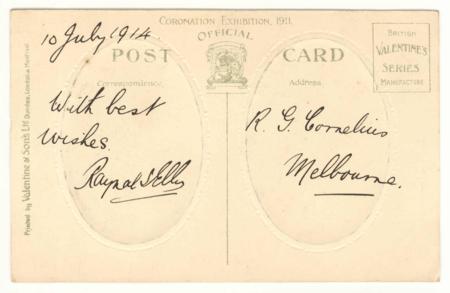 CORONATION EXHIBITION, 1911.
OFFICIAL
10 July 1914
POST CARD
BRITISH
VALENTINE'S
SERIES
MANUFACTURE
Correspondence.
Address.
With best
wishes.
R. G. Cornelius
Melbourne.
Printed by Valentine & Sons Ltd Dundee, London & Montreal